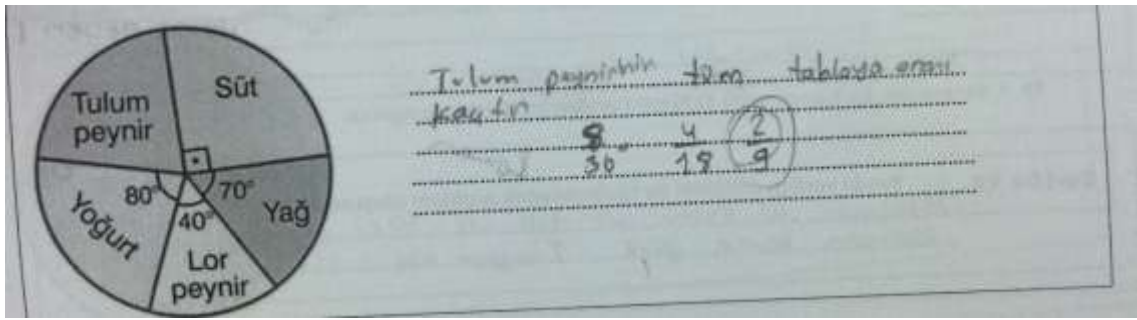 Süt
Tulum
peynir
80°
70°
Yoğurt
40°
Yağ
Lor
peynir
Tulum peynirinin tüm tabloya oranı
kaçtır
8/36 4/18 2/9